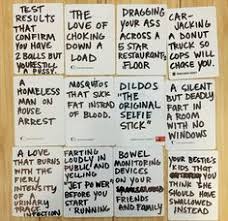 TEST
RESULTS
THAT
CONFIRM
YOU HAVE
2 BALLS BUT
YOU'RE STILL
A PUSSY.
THE
LOVE OF
CHOKING
DOWN A
LOAD
DRAGGING
YOUR ASS
ACROSS A
5 STAR
RESTAURANT'S
FLOOR
CAR-
JACKING
A DONUT
TRUCK SO
COPS WILL
CHASE YOU
A
HOMELESS
MAN ON
HOUSE
ARREST
MOSQUITOS
THAT SUCK
FAT INSTEAD
OF BLOOD.
DILDOS
"THE
ORIGINAL
SELFIE
STICK"
A SILENT
BUT DEADLY
FART IN
A ROOM
WITH NO
WINDOWS
A LOVE
THAT BURNS
WITH THE
FIERY
INTENSITY
OF A
URINARY
TRACT
INFECTION
FARTING
LOUDLY IN
PUBLIC AND
YELLING
"JET POWER"
BEFORE YOU
START
RUNNING
BOWEL
MONITORING
DEVICES
ON YOUR
FRIENDS
AND
FAMILY
YOUR BESTIE'S
KIDS THAT
YOU THINK
SHE
SHOULD HAVE
SWALLOWED
INSTEAD